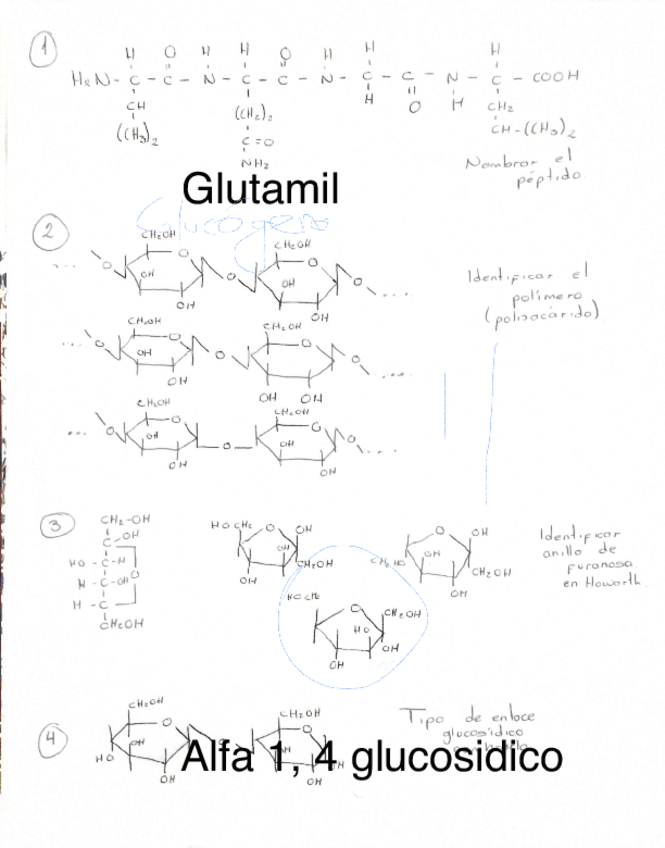 1
H O H H O H H H
H2N - C - C - N - C - C - N - C - C - N - C - COOH
CH (CH2)2 H O H CH2
(CH3)2 C=O CH-(CH3)2
NH2
Nombrar el
péptido.
Glutamil
Glucogeno
2
CH2OH CH2OH
... O O O O O ....
OH OH
OH OH
Identificar el
polímero
(polisacárido)
CH2OH CH2OH
... O O O O O ....
OH
OH OH OH
CH2OH CH2OH
... O O O O O ....
OH OH
OH OH
3
CH2-OH
C-OH
HO-C-H
H-C-OH O
H-C
CH2OH
HOCH2 O OH
OH
OH CH2OH
O OH
OH
CH2OH
OH
Identificar
anillo de
furanosa
en Haworth.
HOCH2
O CH2OH
HO
OH
OH
4
CH2OH CH2OH
O O O
HO OH OH
OH OH
Tipo de enlace
glucosídico
Alfa 1, 4 glucosidico